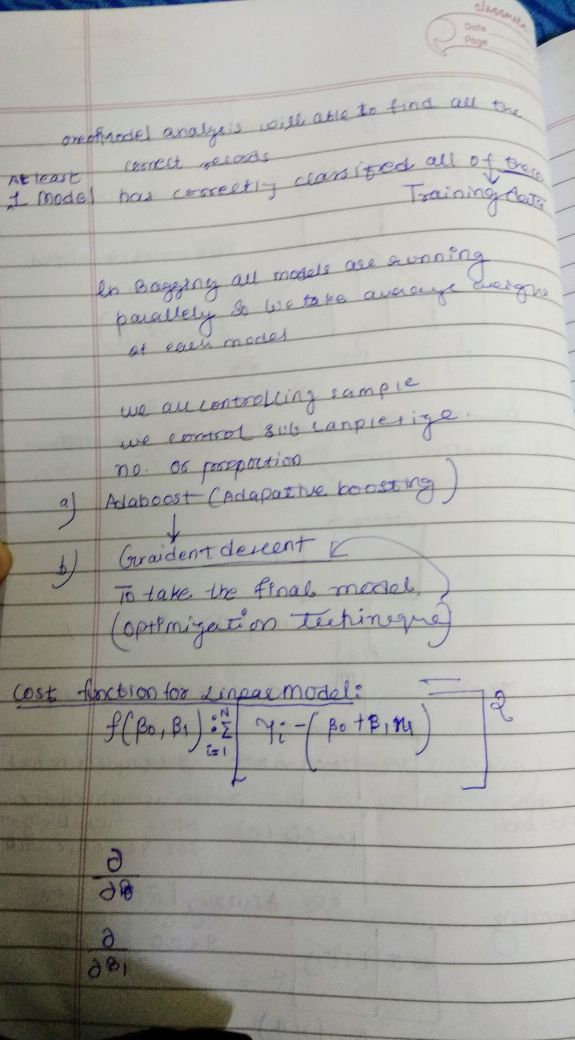 classmate
Date
Page
one of model analysis will able to find all the
correct records
At least
1 model has correctly classified all of trees
Training data
In Bagging all models are running
parallely & we take average weight
of each model
we are controlling sample
we control sub sample size.
no. of proportion
a) Adaboost (Adapative boosting)
↓
b) Graident descent
To take the final model.
(optimization techineque)
Cost function for Linear Model:
f(β₀, β₁) : Σ i=1 N [ yi - (β₀ + β₁ xi) ]²
∂/∂β₀
∂/∂β₁